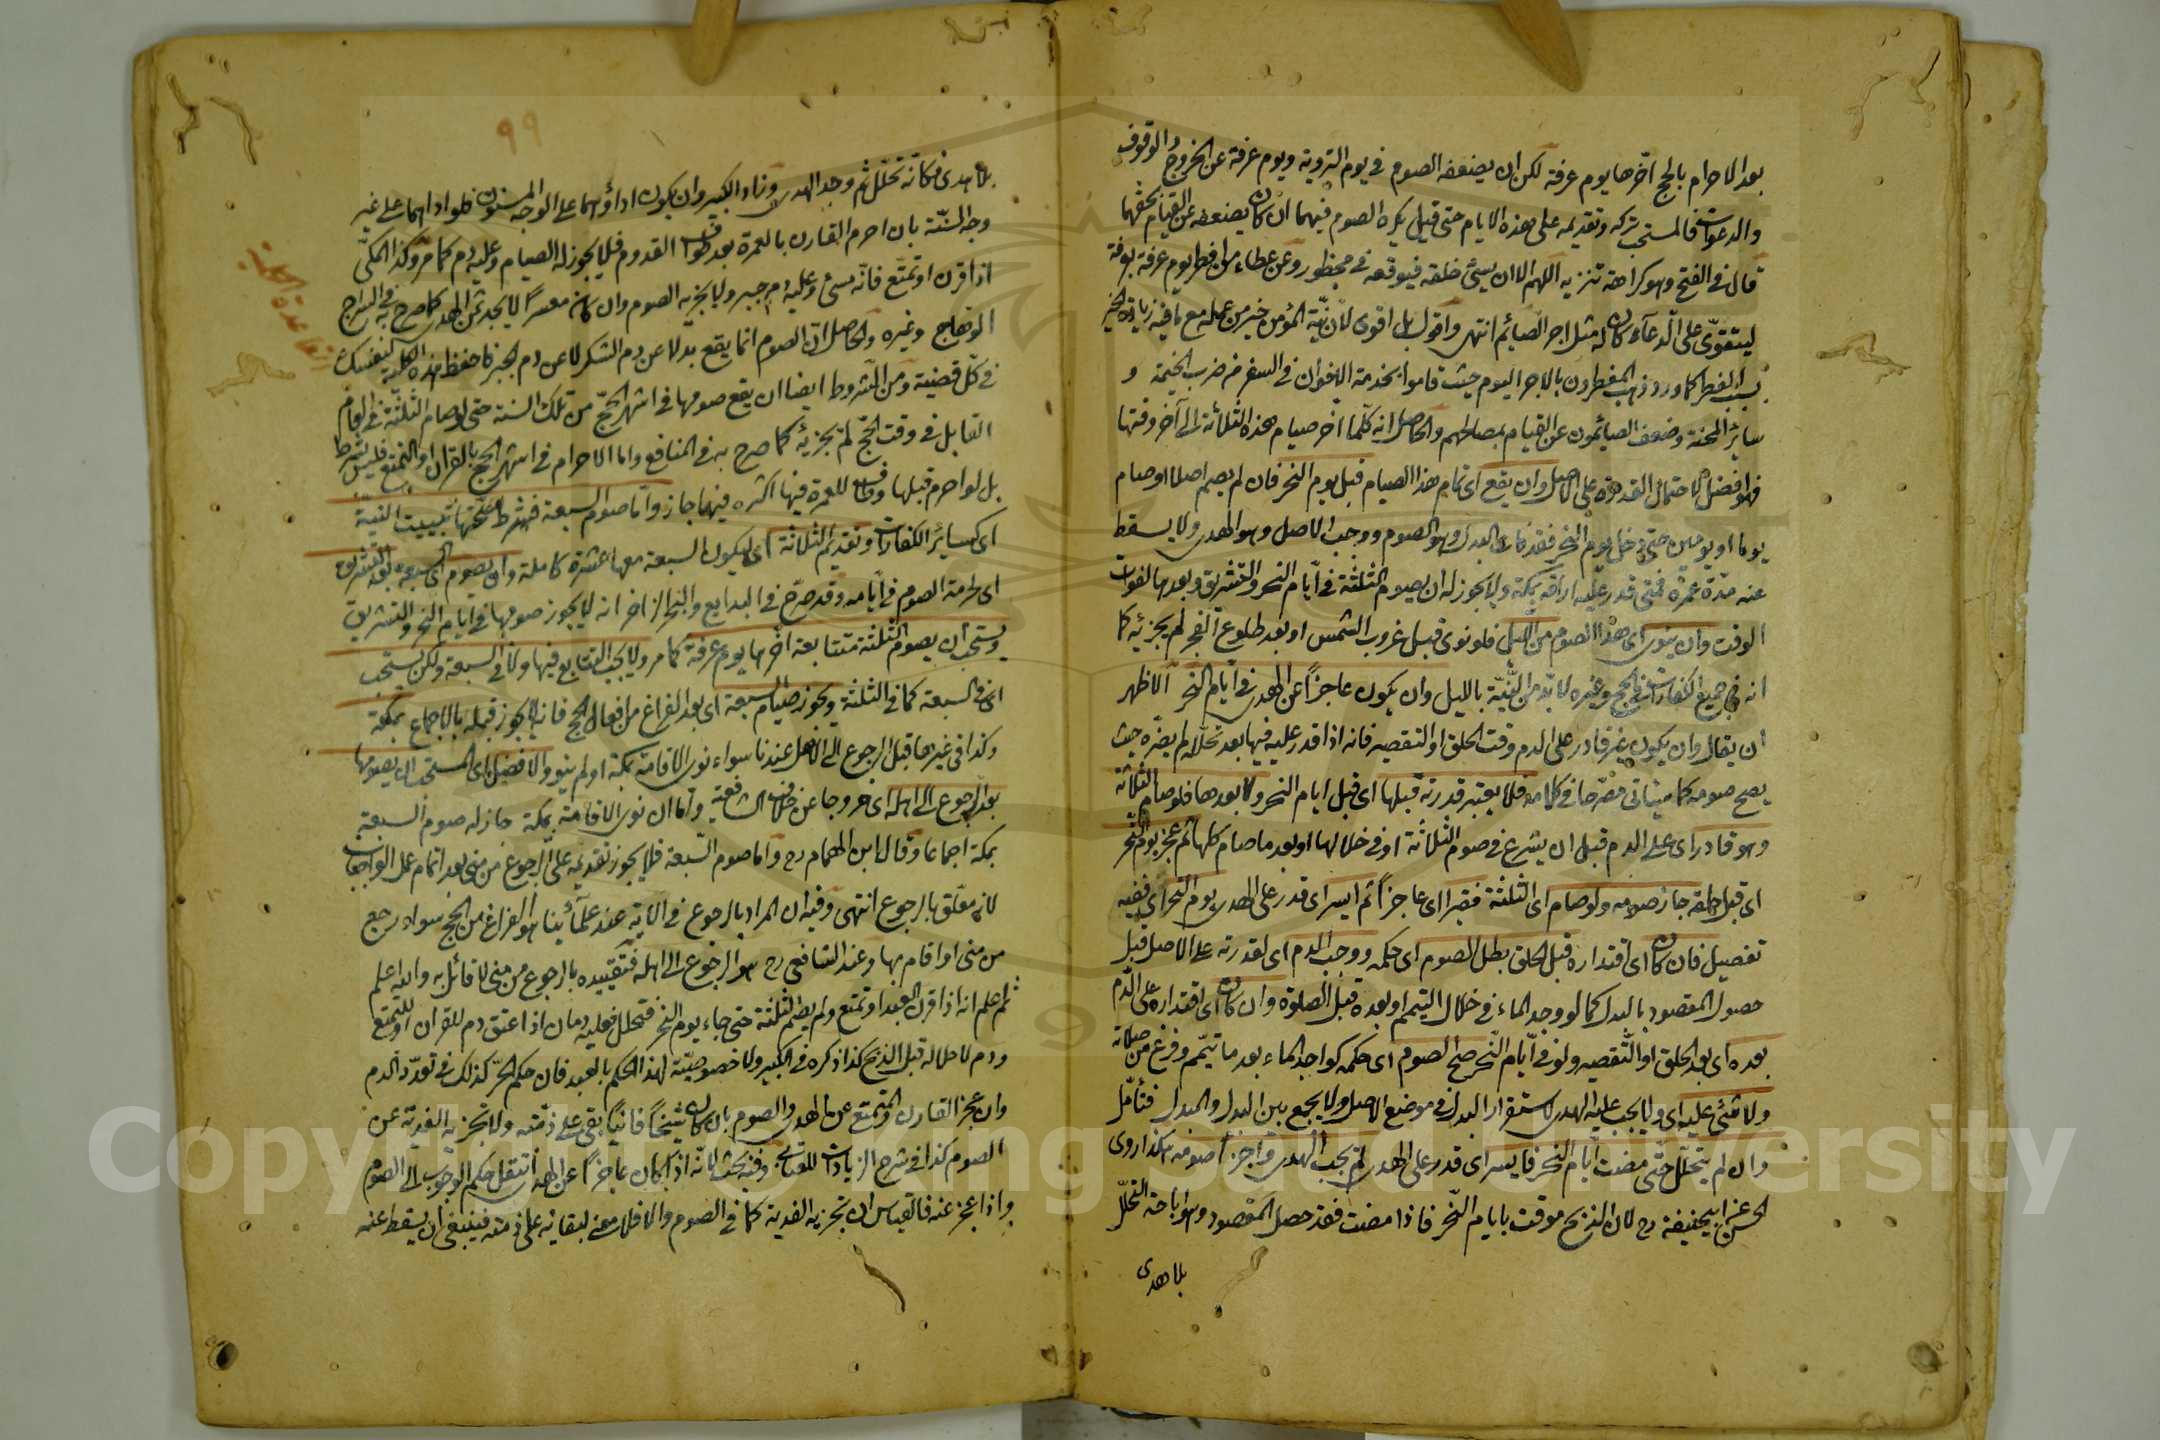 بعد الاحرام بالحج آخرها يوم عرفة لكن ان يضعفه الصوم في يوم التروية ويوم عرفة عن الخروج والوقوف
والدعوات فالمستحب تركه وتقديمه على هذه الايام حتى قيل يكره الصوم فيهما ان كان يضعفه عن القيام بحقهما
قال في الفتح وهو كراهة تنزيه اللهم الا ان يسيئ خلقه فيوقعه في محظور وعن عطاء من افطر يوم عرفة بعرفة
ليتقوى على الدعاء كان له مثل اجر الصائم انتهى واقول بل اقوى لان نية المؤمن خير من عمله مع ما فيه زيادة الخير
بسبب الفطر كما ورد ذهب المفطرون بالاجر اليوم حيث قاموا بخدمة الاخوان في السفر من ضرب الخيمة و
سائر المحنة وضعف الصائمون عن القيام بمصالحهم والحاصل انه كلما اخر صيام هذه الثلاثة الى آخر وقتها
فهو افضل لاحتمال القدرة على الاصل وان يقع اي تمام هذا الصيام قبل يوم النحر فان لم يصم اصلا او صام
يوما او يومين حتى دخل يوم النحر فقد فات البدل وهو الصوم ووجب الاصل وهو الهدى ولا يسقط
عنه مدة عمره فمتى قدر عليه اراقه بمكة ولا يجوز له ان يصوم الثلثة في ايام النحر والتشريق وبعدها لفوات
الوقت وان ينوى اي هذا الصوم من الليل فلو نوى قبل غروب الشمس او بعد طلوع الفجر لم يجزئه كما
انه في جميع الكفارات في الحج وغيره لا بد من النية بالليل وان يكون عاجزاً عن الهدى في ايام النحر الاظهر
ان يقال وان يكون غير قادر على الدم وقت الحلق او التقصير فانه اذا قدر عليه فيها بعد تحلله لم يضره حيث
يصح صومه كما سيأتى مصرحا في كلامه فلا يعتبر قدرته قبلها اي قبل ايام النحر ولا بعدها فلو صام الثلاثة
وهو قادر اي على الدم قبل ان يشرع في صوم الثلاثة او في خلالها او بعد ما صام كلها ثم عجز يوم النحر
اي قبل حلقه جاز صومه ولو صام اي الثلثة فقيرا اي عاجزاً ثم ايسر اي قدر على الهدى يوم النحر اي ففيه
تفصيل فان كان اي اقتداره قبل الحلق بطل الصوم اي حكمه ووجب الدم اي لقدرته على الاصل قبل
حصول المقصود بالبدل كما لو وجد الماء في خلال التيمم او بعده قبل الصلوة وان كان اي اقتداره على الدم
بعده اي بعد الحلق او التقصير ولو في ايام النحر صح الصوم اي حكمه كواجد الماء بعد ما تيمم وفرغ من صلاته
ولا شئ عليه اي ولا يجب عليه الهدى لاستقرار البدل في موضع الاصل ولا يجمع بين البدل والمبدل فتأمل
وان لم يتحلل حتى مضت ايام النحر فايسر اي قدر على الهدى لم يجب الهدى واجزأ صومه هكذا روى
الحسن عن ابي حنيفة رح لان الذبح موقت بايام النحر فاذا مضت فقد حصل المقصود وهو اباحة التحلل
بلا هدى
٩٩
بلا هدى فكانه تحلل ثم وجد الهدى وزاد الكبير وان يكون اداؤهما على الوجه المسنون فلو اداهما على غير
وجه السنة بان احرم القارن بالعمرة بعد طواف القدوم فلا يجوز له الصيام وعليه دم كما مر وكذا المكي
اذا قرن او تمتع فانه مسئ وعليه دم جبر ولا يجزيه الصوم وان كان معسراً لا يجد ثمن الهدى كما صرح به في السراج
الوهاج وغيره والحاصل ان الصوم انما يقع بدلا عن دم الشكر لا عن دم الجبر فاحفظ هذه الكلية لينفعك
في كل قضية ومن الشروط ايضا ان يقع صومها في اشهر الحج من تلك السنة حتى لو صام الثلثة في العام
القابل في وقت الحج لم يجزئه كما صرح به في المنافع واما الاحرام في اشهر الحج بالقران او التمتع فليس بشرط
بل لو احرم قبلها وطاف للعمرة فيها اكثره فيهما جاز واما صوم السبعة فشرط صحتها تبييت النية
اي كسائر الكفارات وتقديم الثلاثة اي ليكون السبعة معها عشرة كاملة وان يصوم السبعة بعد التشريق
اي لحرمة الصوم في ايامه وقد صرح في البدايع والبحر الزاخر انه لا يجوز صومها في ايام النحر والتشريق
ويستحب ان يصوم الثلثة متتابعة آخرها يوم عرفة كما مر ولا يجب التتابع فيها ولا في السبعة ولكن يستحب
اي في السبعة كما في الثلثة ويجوز صيام السبعة اي بعد الفراغ من افعال الحج فانه لا يجوز قبله بالاجماع بمكة
وكذا في غيرها قبل الرجوع الى الاهل عندنا سواء نوى الاقامة بمكة او لم ينو والافضل اي المستحب ان يصومها
بعد الرجوع الى اهله اي خروجا عن خلاف الشافعي واما ان نوى الاقامة بمكة جاز له صوم السبعة
بمكة اجماعا وقال ابن الهمام رح واما صوم السبعة فلا يجوز تقديمه على الرجوع من منى بعد اتمام عمل الواجبات
لانه معلق بالرجوع انتهى وفيه ان المراد بالرجوع في الاية عند علمائنا هو الفراغ من الحج سواء رجع
من منى او اقام بها وعند الشافعي رح هو الرجوع الى اهله فتقييده بالرجوع من منى لا قائل به والله اعلم
ثم اعلم انه اذا قرن العبد او تمتع ولم يصم الثلثة حتى جاء يوم النحر فتحلل فعليه دمان اذا عتق دم للقران او للتمتع
ودم لاحلاله قبل الذبح كذا ذكره في الكبير ولا خصوصية لهذا الحكم بالعبد فان حكم الحر كذلك في تعدد الدم
وان عجز القارن والمتمتع عن الهدى والصوم بان كان شيخاً فانياً بقى على ذمته ولا تجزيه الفدية عن
الصوم كذا في شرح الزيادات للعتابى وفيه بحث لانه اذا كان عاجزاً عن الهدى انتقل حكم الوجوب الى الصوم
واذا عجز عنه فالقياس ان تجزيه الفدية كما في الصوم والا فلا معنى لبقائه على ذمته فينبغى ان يسقط عنه